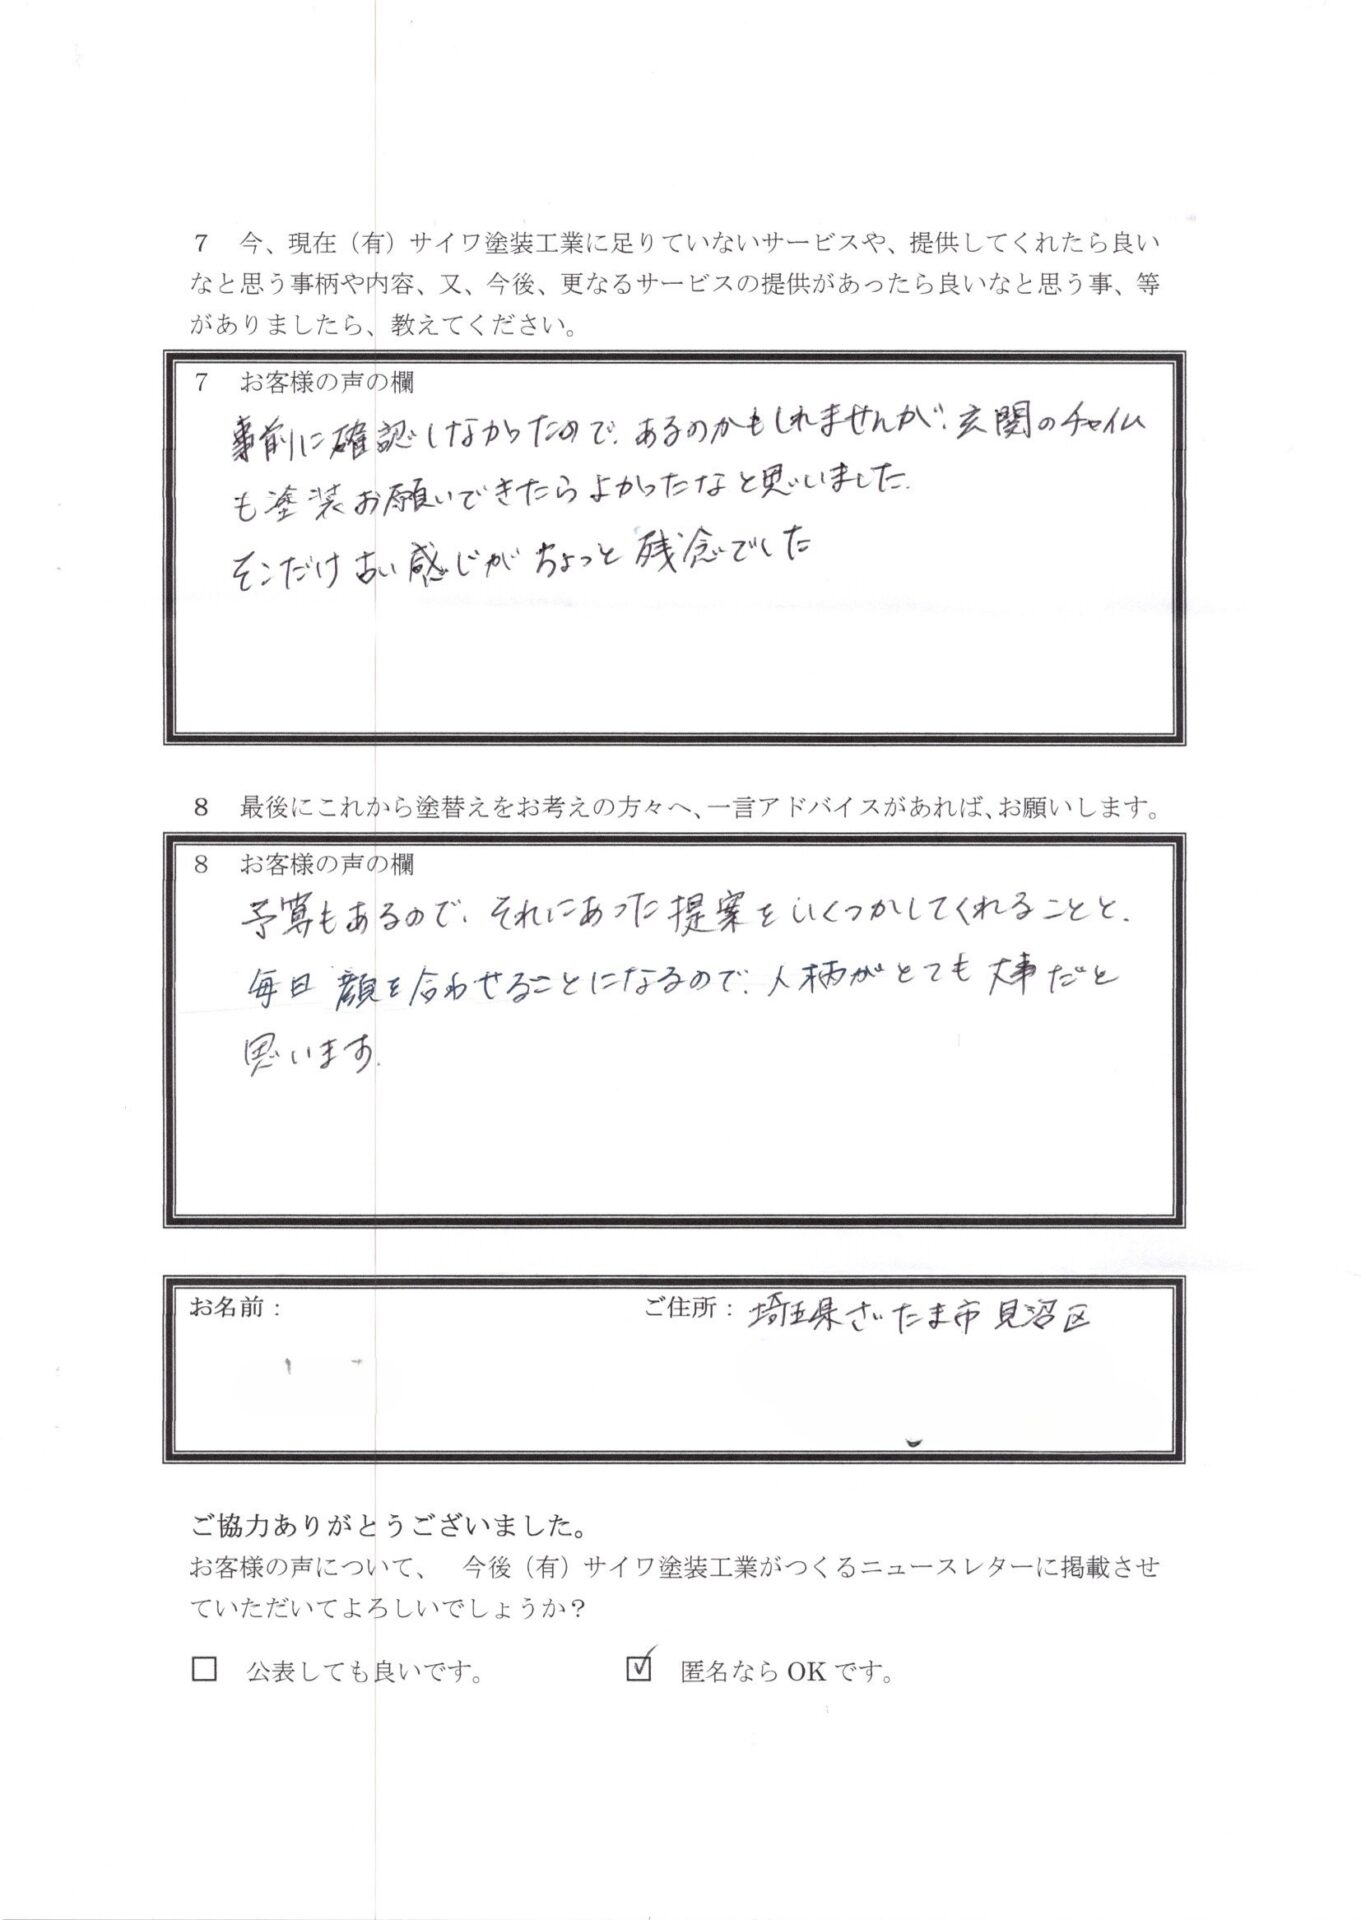 ７　今、現在（有）サイワ塗装工業に足りていないサービスや、提供してくれたら良い
なと思う事柄や内容、又、今後、更なるサービスの提供があったら良いなと思う事、等
がありましたら、教えてください。
７　お客様の声の欄
事前に確認しなかったので、あるのかもしれませんが、玄関のチャイム
も塗装お願いできたらよかったなと思いました。
そこだけ古い感じがちょっと残念でした
８　最後にこれから塗替えをお考えの方々へ、一言アドバイスがあれば、お願いします。
８　お客様の声の欄
予算もあるので、それにあった提案をいくつかしてくれることと、
毎日顔を合わせることになるので、人柄がとても大事だと
思います。
お名前：　ご住所：埼玉県さいたま市見沼区
ご協力ありがとうございました。
お客様の声について、　今後（有）サイワ塗装工業がつくるニュースレターに掲載させ
ていただいてよろしいでしょうか？
□　公表しても良いです。　☑　匿名なら OK です。